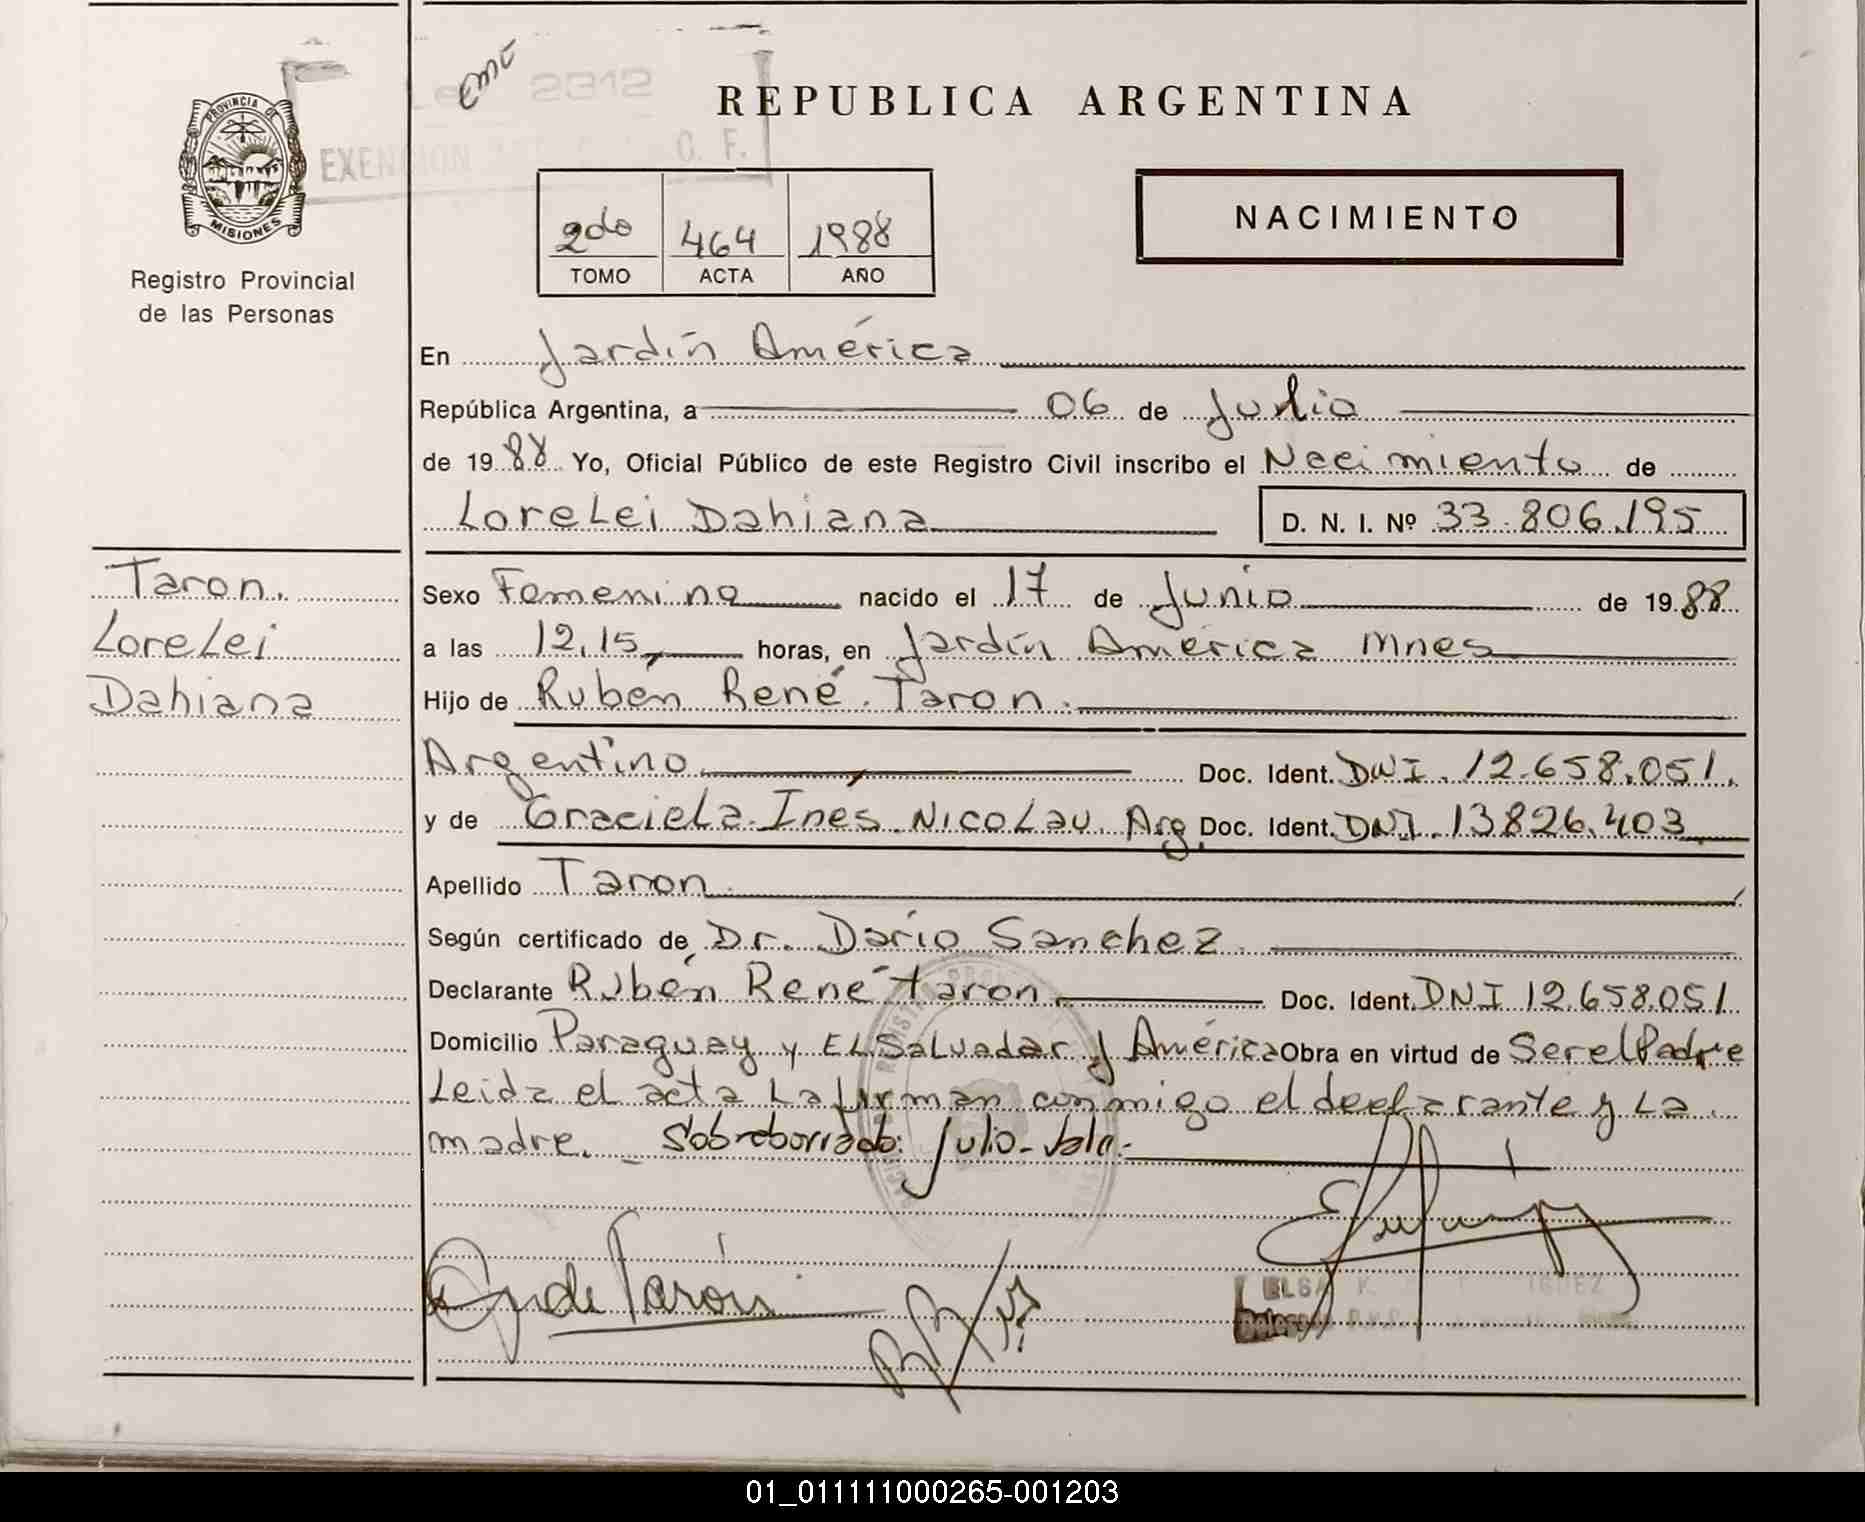 eme
Ley 2312
EXENCION C. F.
PROVINCIA DE
MISIONES
Registro Provincial
de las Personas
REPUBLICA ARGENTINA
2do 464 1988
TOMO ACTA AÑO
NACIMIENTO
En Jardín América
República Argentina, a 06 de Julio
de 1988 Yo, Oficial Público de este Registro Civil inscribo el Nacimiento de
Lorelei Dahiana D. N. I. Nº 33.806.195
Taron.
Lorelei
Dahiana
Sexo Femenino nacido el 17 de Junio de 1988
a las 12,15, horas, en Jardín América Mnes
Hijo de Rubén René Taron.
Argentino Doc. Ident. DNI. 12.658.051.
y de Graciela Inés Nicolau. Arg. Doc. Ident. DNI. 13826.403
Apellido Taron
Según certificado de Dr. Darío Sanchez
Declarante Rubén René Taron Doc. Ident. DNI 12.658.051
Domicilio Paraguay y El Salvador J América Obra en virtud de Ser el Padre
Leida el acta La firman conmigo el declarante y La
madre. Sobreborrado: Julio- Vale.-
de Tarón
ELSA
01_011111000265-001203